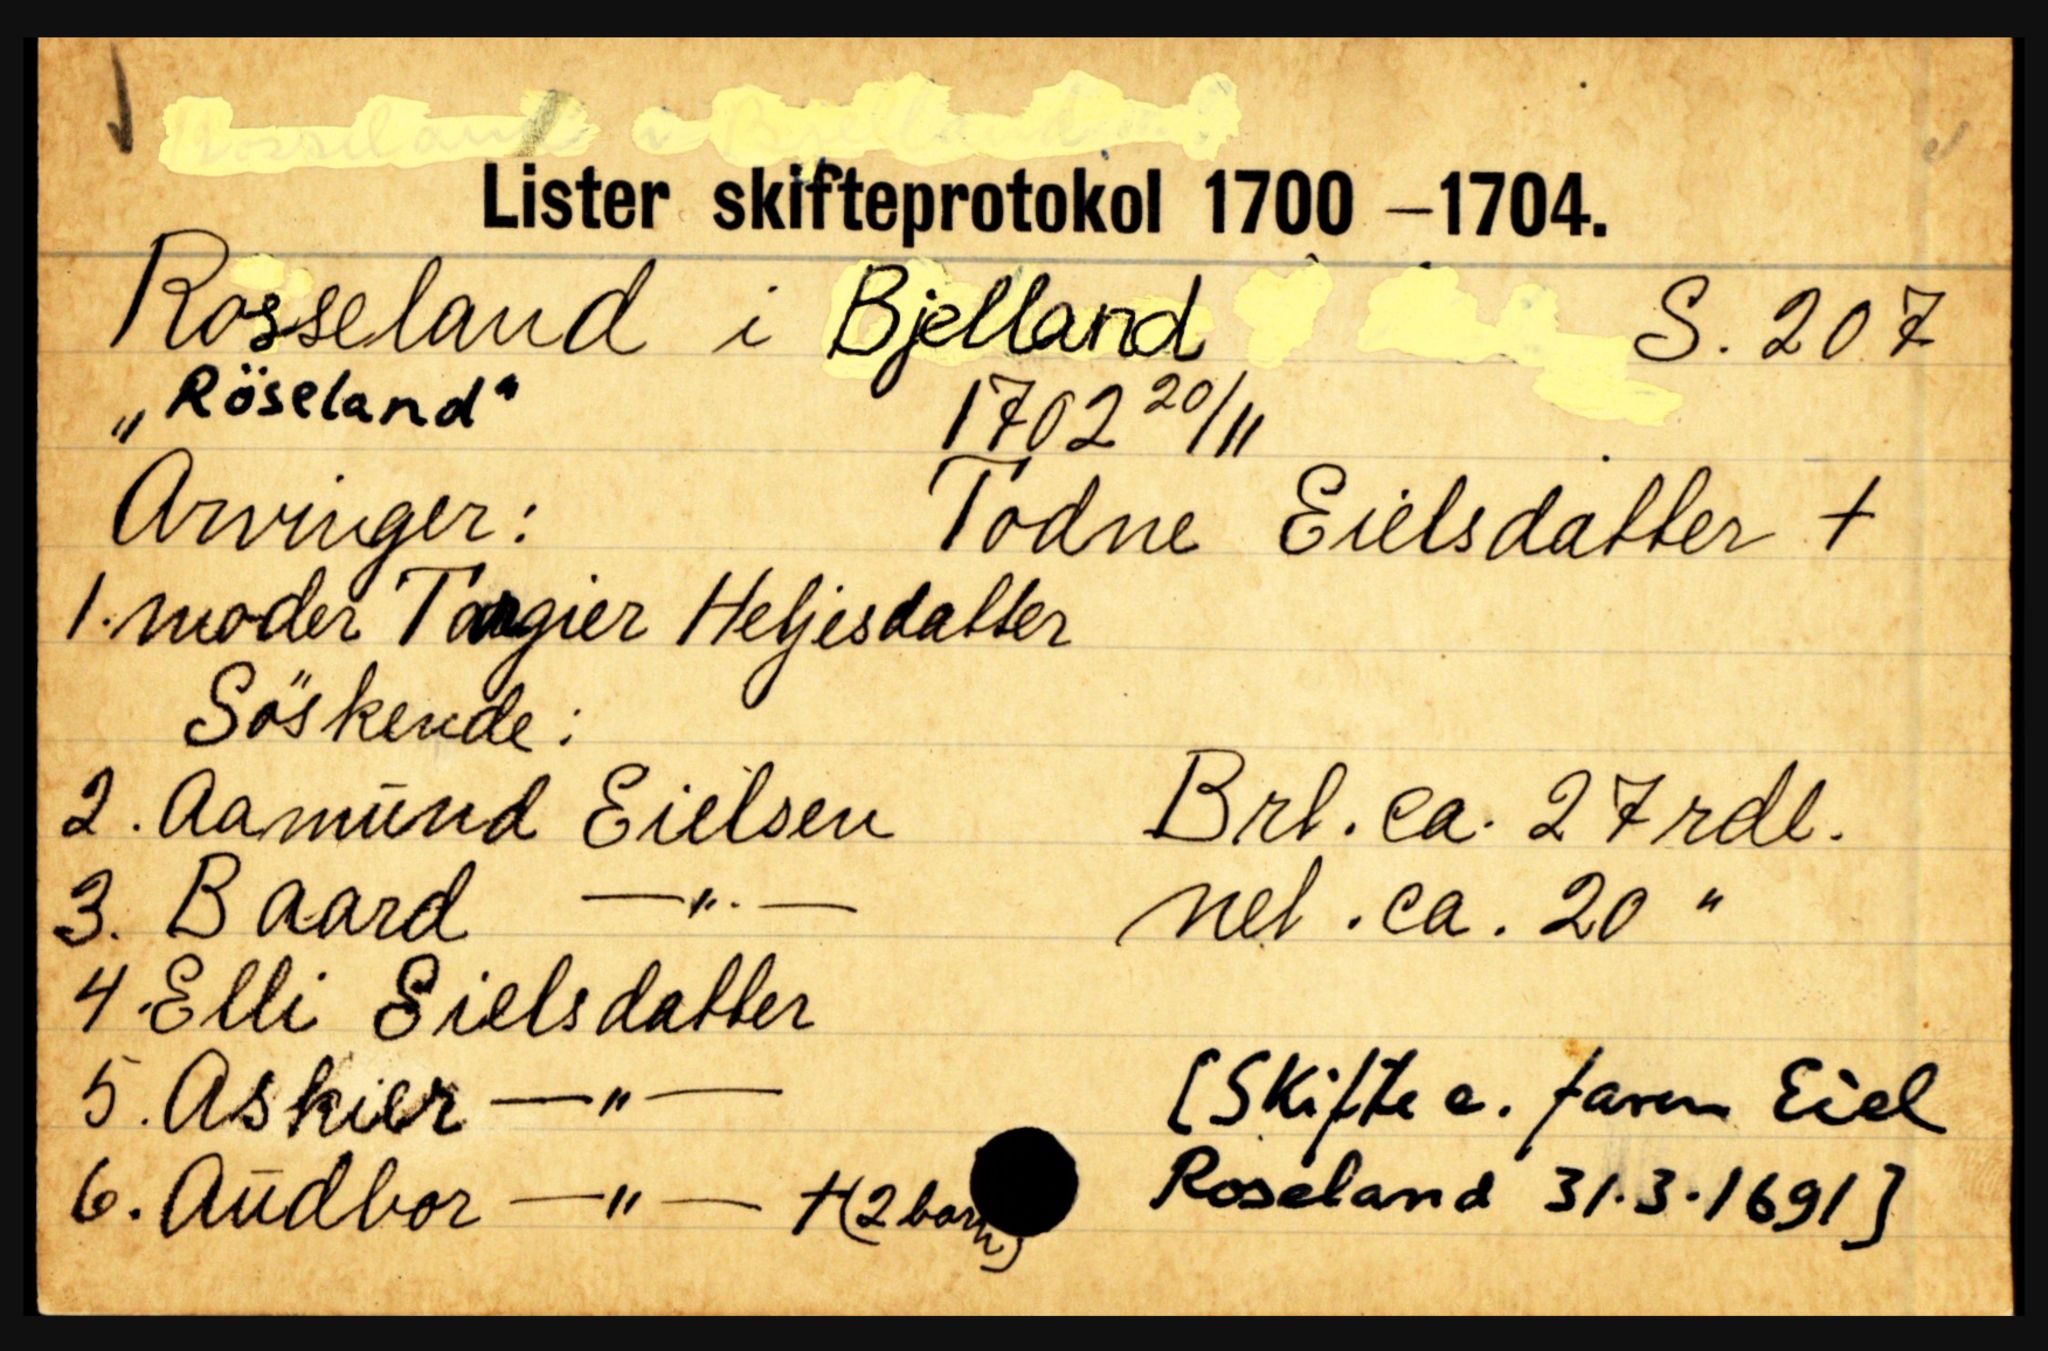 Lister skifteprotokol 1700 – 1704.
Rosseland i Bjelland S. 207
„Röseland" 1702 20/11
Arvinger: Todne Eielsdatter +
1. moder Targier Heljesdatter
Söskende:
2. Aamūnd Eielsen Brl. ca. 27 rdl.
3. Baard —„— nel. ca. 20 "
4. Elli Eielsdatter
5. Askier —„— [Skifte e. faren Eiel
6. Aūdbor —„— + (2 barn) Roseland 31.3.1691]